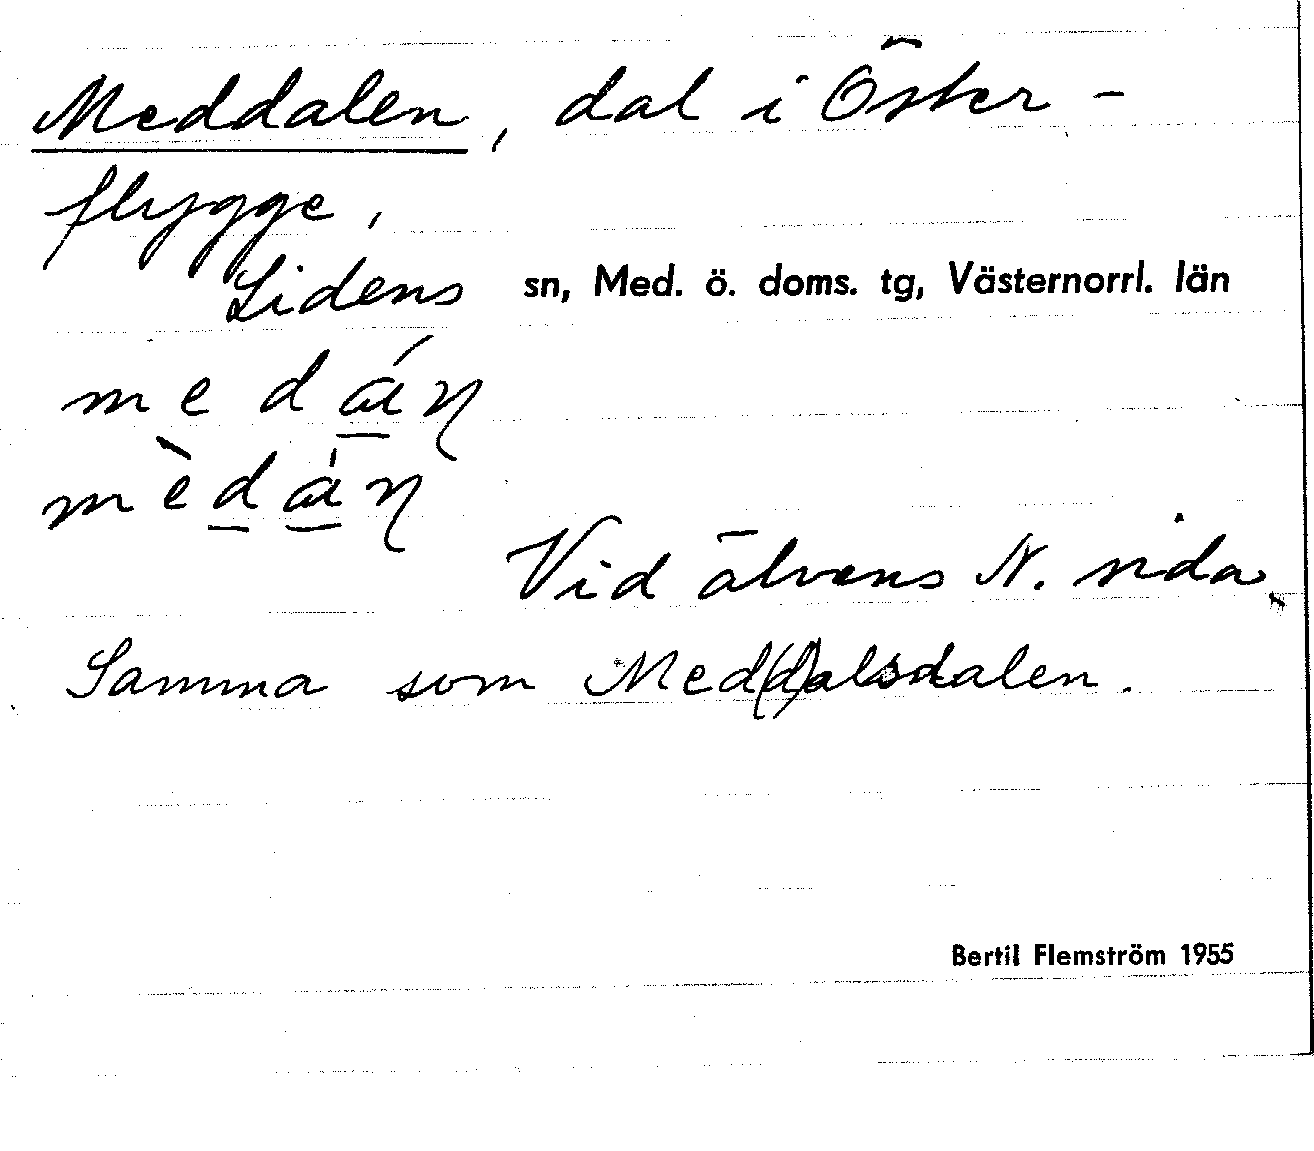 Meddalen, dal i Öster-
flygge,
Lidens sn, Med. ö. doms. tg, Västernorrl. län
Vid älvens N. sida.
Samma som Med(d)alsdalen.
Bertil Flemström 1955